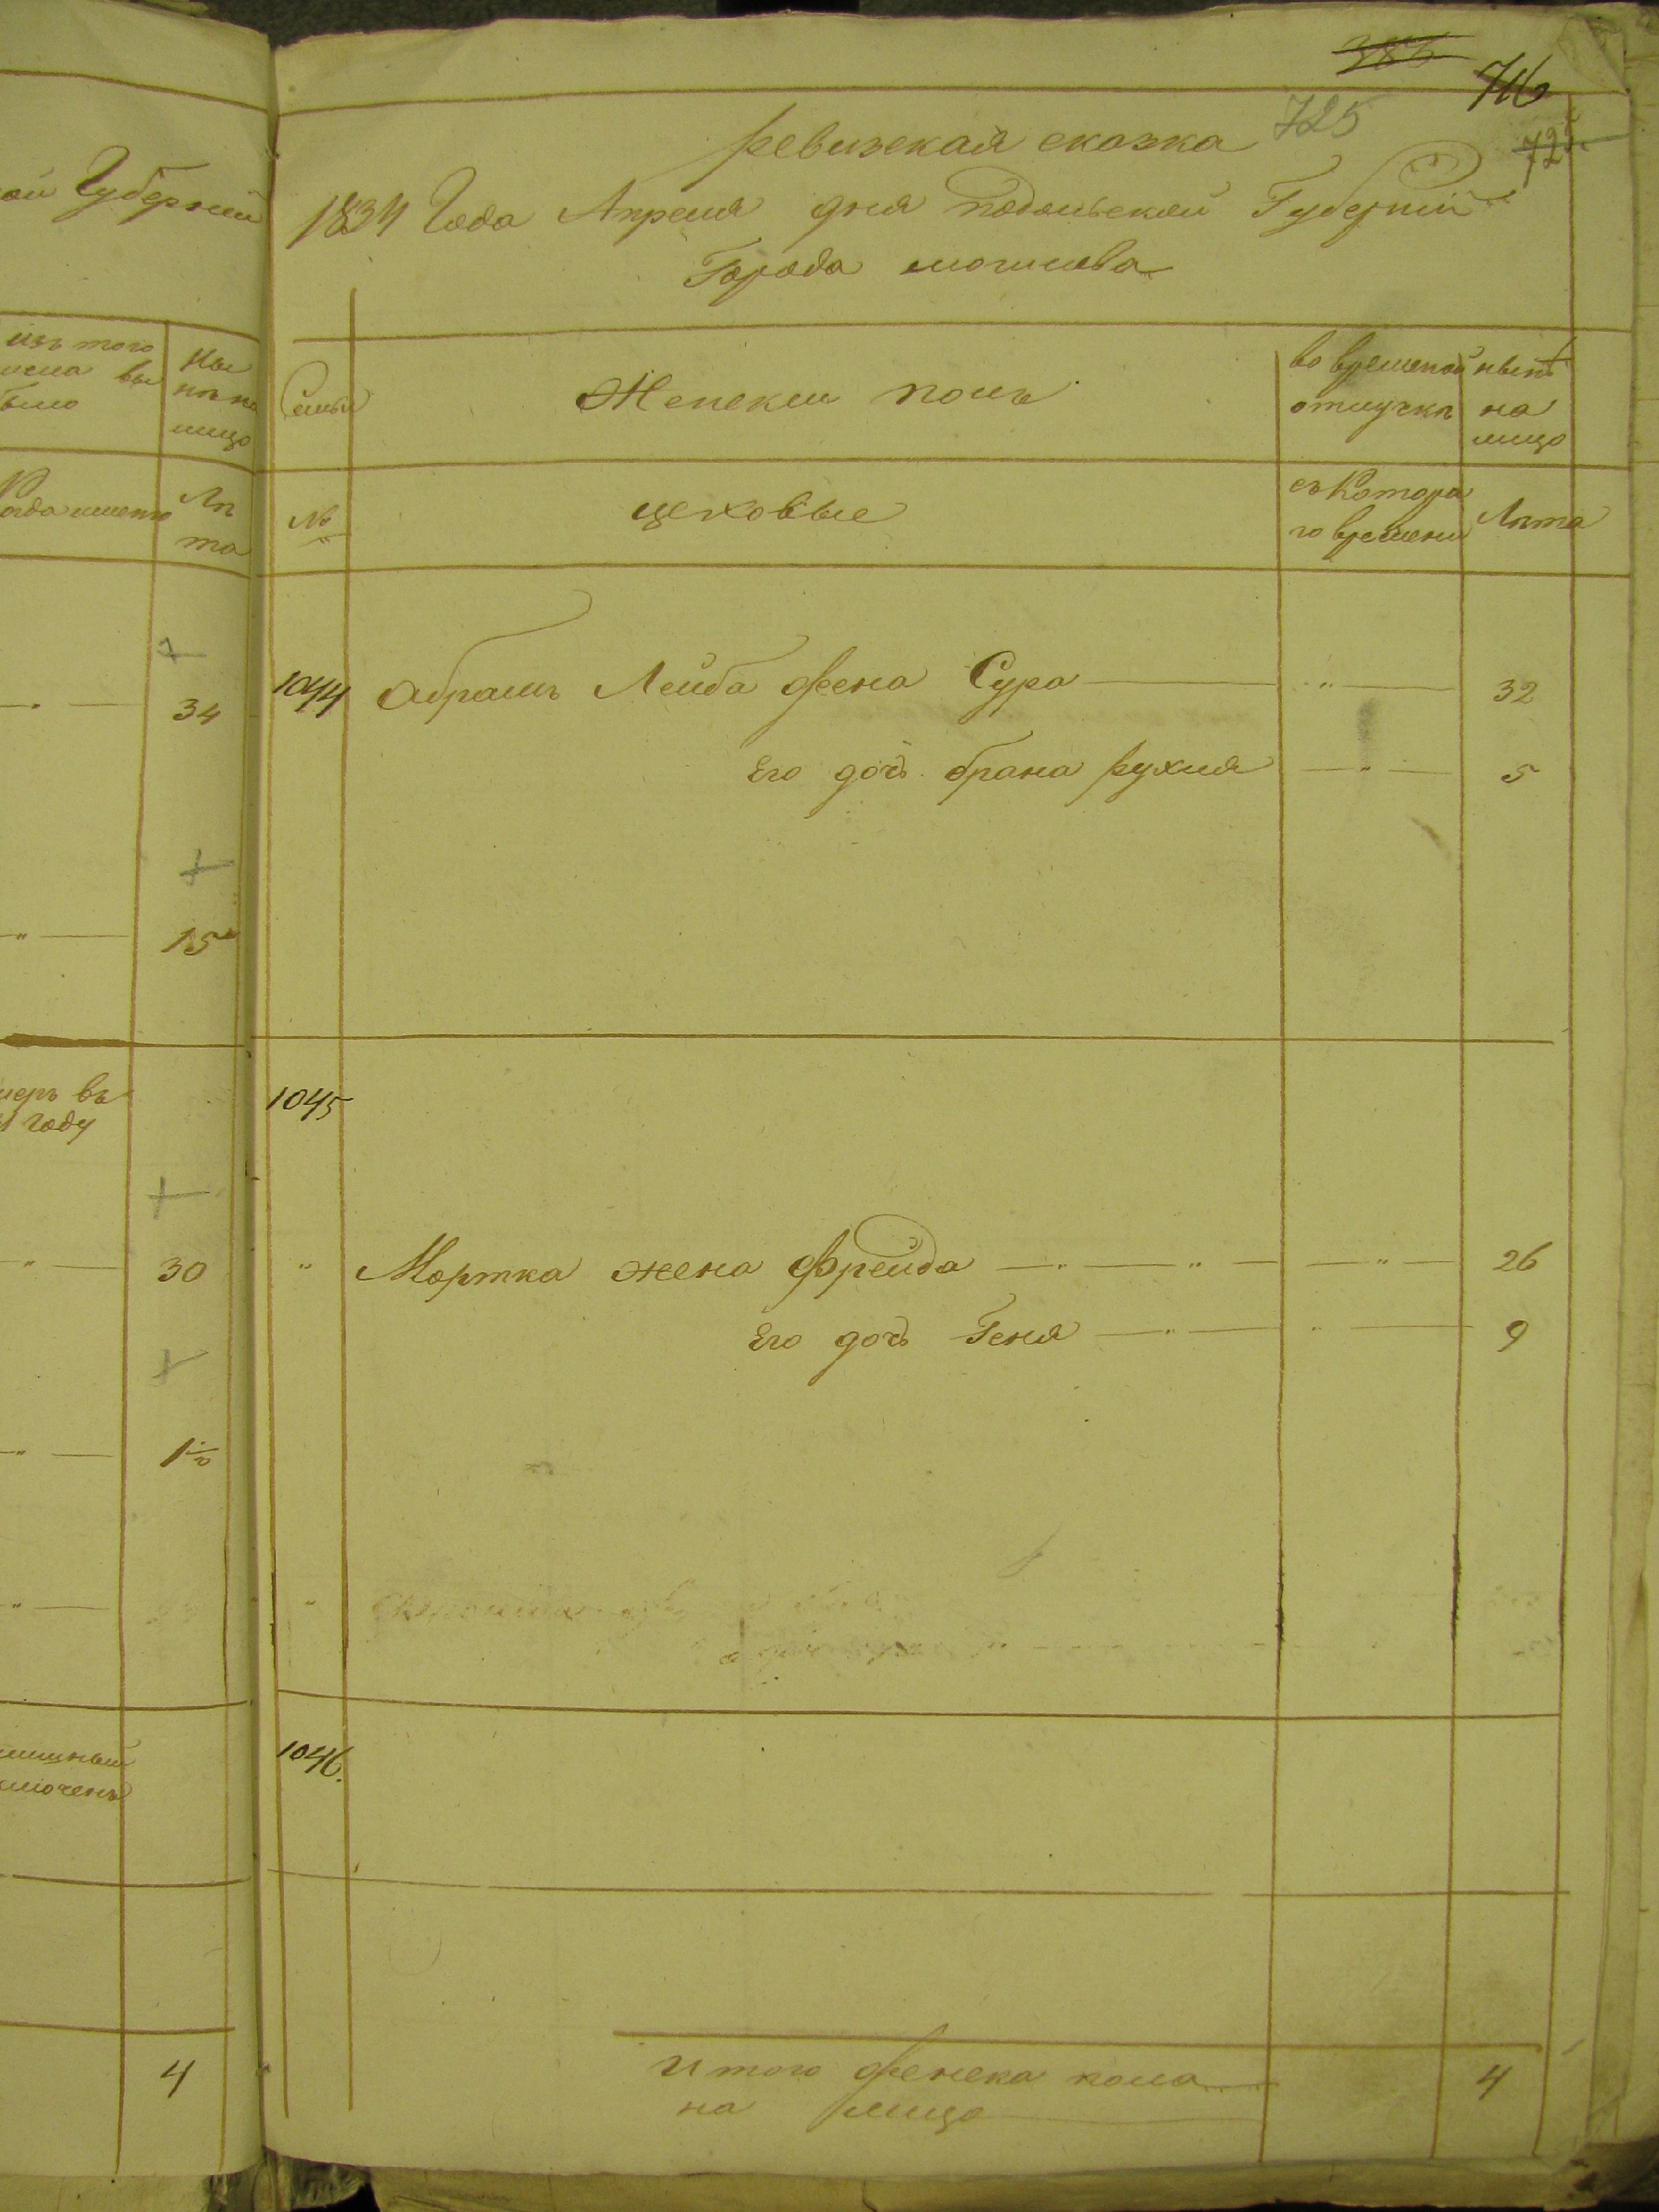 ой Губерний
изъ того
было
Ны
нѣ на
лицо
Лѣ
та
34
15
въ
году
30
1½
4
383
716
725
725
ревизская сказка
1834 Года Апреля дня подольской Губернии
Города могилева
Семьи
Женский полъ
во временной
отлучкѣ
нынѣ
на
лицо
№
цеховые
съ Котора
го времени
Лѣта
1044 Абрамъ Лейба жена Сура — " — 32
Его дочь брана рухля — " — 5
1045
" Мортка жена Фрейда — " — " — " — 26
Его дочь Геня — " — " — 9
"
1046.
Итого женска пола 4
на лицо